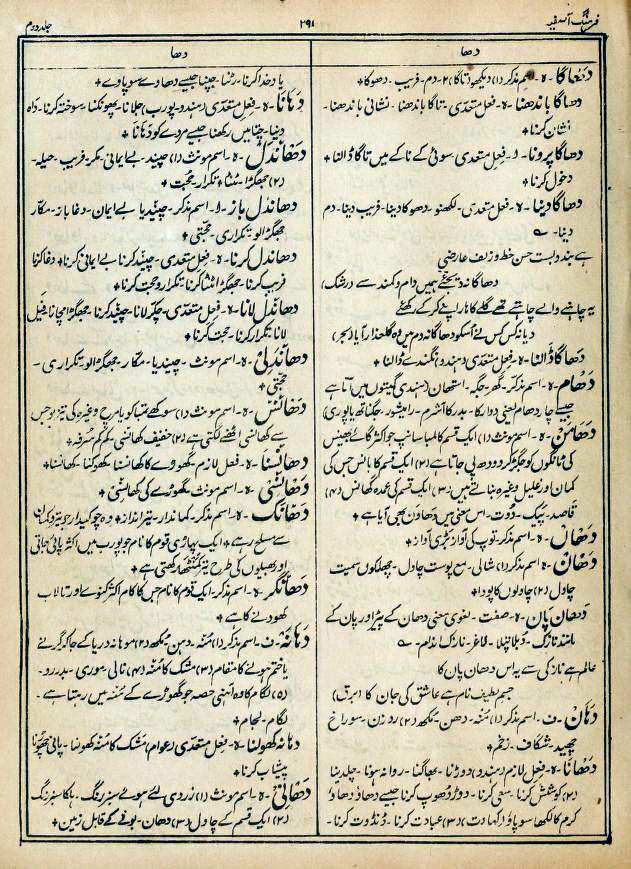 فرہنگ آصفیہ
۲۹۱
جلد دوم
دھا
دھا
دھاگا - ہ - اسم مذکر (۱) دیکھو (تاگا) ۲ - دم - فریب - دھوکا +
دھاگا باندھنا - ہ - فعل متعدی - تاگا باندھنا - نشانی باندھنا -
نشان کرنا +
دھاگا پرونا - ہ - فعل متعدی سوئی کے ناکے میں تاگا ڈالنا +
دخول کرنا +
دھاگا دینا - ہ - فعل متعدی - لکھنو - دھوکا دینا - فریب دینا - دم
دینا - ؎
ہے بندوبست حسن خط و زلف عارضی
دھاگا نہ دیجئے ہمیں دام و کمند سے (رشک)
یہ چاہنے والے چاہتے تھے گلے کا ہار اپنے کر کے رکھئے
دیا نہ کس کس نے اُسکو دھاگا نہ دم میں وہ گلعذار آیا (بحر)
دھاگا ڈالنا - ہ - فعل متعدی (ہندو) نگندے ڈالنا +
دھام - ہ - اسم مذکر - گھر - جگہ - استھان (ہندی گیتوں میں آتا ہے
جیسے چار دھام یعنی دوارکا - بدرکا آشرم - رامیشور - جگناتھ یا پوری)
دھامن - ہ - اسم مذکر (۱) ایک قسم کا لمبا سانپ جو اکثر گائے بھینس
کی ٹانگوں کو جکڑ کر دودھ پی جاتا ہے (۲) ایک قسم کا بانس جس کی
کمان اور غلیل وغیرہ بناتے ہیں (۳) ایک قسم کی عمدہ گھانس (۴)
قاصد - پیک - دُوت - اس معنی میں دھاون بھی آیا ہے +
دھاں - ہ - اسم مذکر - توپ کی آواز - بڑی آواز +
دھان - ہ - اسم مذکر (۱) شالی - مع پوست چاول - چھلکوں سمیت
چاول (۲) چاولوں کا پودا +
دھان پان - ہ - صفت - لغوی معنی دھان کے پیڑ اور پان کے
مانند نازک - دُبلا پتلا - لاغر - نازک اندام - ؎
عالم ہے نازکی سے یہ اس دھان پان کا
جسم لطیف نام ہے عاشق کی جان کا (برق)
دہان - ف - اسم مذکر (۱) منہ - دہن - مکھ (۲) روزن - سوراخ
چھید - شگاف - زخم +
دھانا - ہ - فعل لازم (ہندو) دوڑنا - بھاگنا - روانہ ہونا - چلدینا
(۲) کوشش کرنا - سعی کرنا - دوڑ دھوپ کرنا جیسے دھاؤ دھاؤ
کرم کا لکھا سو پاؤ (کہاوت) (۳) عبادت کرنا - ڈنڈوت کرنا -
یاد خدا کرنا - رٹنا - جپنا جیسے دھاوے سو پاوے +
دہانا - ہ - فعل متعدی (ہندو - پورب) جلانا - پھونکنا - سوختہ کرنا - داہ
دینا - چتا میں رکھنا جیسے مردے کو دہانا +
دھاندل - ہ - اسم مونث (۱) چیند - بے ایمانی - مکر - فریب - حیلہ -
(۲) جھگڑا - ٹنٹا + تکرار - حجت +
دھاندل باز - ہ - اسم مذکر - چیندیا - بے ایمان - دغا باز - مکار
جھگڑالو - تکراری - حجتی +
دھاندل کرنا - ہ - فعل متعدی - چیند کرنا - بے ایمانی کرنا + دغا کرنا
فریب کرنا - جھگڑا ٹنٹا کرنا - تکرار و حجت کرنا +
دھاندل لانا - ہ - فعل متعدی - چکر لانا - چیند کرنا - جھگڑا مچانا - فیل
لانا - تکرار کرنا - حجت کرنا +
دھاندلی - ہ - اسم مونث - چیندیا - مکار - جھگڑالو - تکراری -
حجتی +
دھانس - ہ - اسم مونث (۱) سوکھے تمباکو یا مرچ وغیرہ کی تیز بو جس
سے کھانسی اٹھنے لگتی ہے (۲) خفیف کھانسی - کم کم سرفہ +
دھانسنا - ہ - فعل لازم - گھوڑے کا کھانسنا - کھوکنا - کھانسنا +
دھانسی - ہ - اسم مونث - گھوڑے کی کھانسی +
دھانک - ہ - اسم مذکر - کماندار - تیر انداز + وہ چوکیدار جو تیر و کمان
سے مسلح رہے + ایک پہاڑی قوم کا نام جو پورب میں اکثر پائی جاتی
اور بھیلوں کی طرح تیر کمٹھا رکھتی ہے +
دھانگر - ہ - اسم مذکر - ایک قوم کا نام جس کا کام اکثر کنوے اور تالاب
کھودنے کا ہے +
دہانہ - ف - اسم مذکر (۱) منہ - دہن - مکھ (۲) موہانہ دریا کے جا کر گرنے
یا ختم ہونے کا مقام (۳) مشک کا منہ (۴) نالی - موری - بدررو -
(۵) لگام کا وہ آہنی حصہ جو گھوڑے کے منہ میں رہتا ہے -
لگام - لجام +
دہانہ کھولنا - ہ - فعل متعدی (عوام) مشک کا منہ کھولنا - پانی چھوڑنا
پیشاب کرنا +
دھانی - ہ - اسم مونث (۱) زردی لئے ہوئے سبز رنگ - ہلکا سبز رنگ
(۲) ایک قسم کے چاول (۳) دھان - بونے کے قابل زمین +